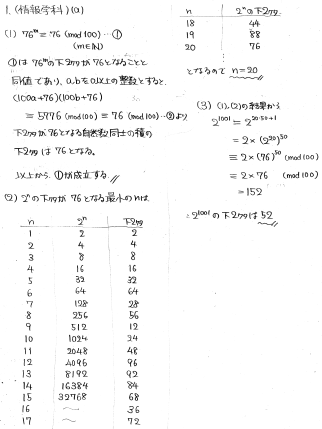 1. (情報学科) (a)
(1) 76^m ≡ 76 (mod 100) … ①
(m∈N)
①は 76^mの下2ケタが76となることと
同値であり、a,bを0以上の整数とすると、
(100a+76)(100b+76)
≡ 5776 (mod 100) ≡ 76 (mod 100) … ②より
下2ケタが76となる自然数同士の積の
下2ケタは 76となる。
以上から、①が成立する。
(2) 2^nの下2ケタが 76となる最小のnは
n 2^n 下2ケタ
1 2 2
2 4 4
3 8 8
4 16 16
5 32 32
6 64 64
7 128 28
8 256 56
9 512 12
10 1024 24
11 2048 48
12 4096 96
13 8192 92
14 16384 84
15 32768 68
16 〜 36
17 72
n 2^nの下2ケタ
18 44
19 88
20 76
となるので n=20
(3) (1),(2)の結果から
2^1001 = 2^20·50+1
= 2×(2^20)^50
≡ 2×(76)^50 (mod 100)
≡ 2×76 (mod 100)
= 152
∴2^1001の下2ケタは 52